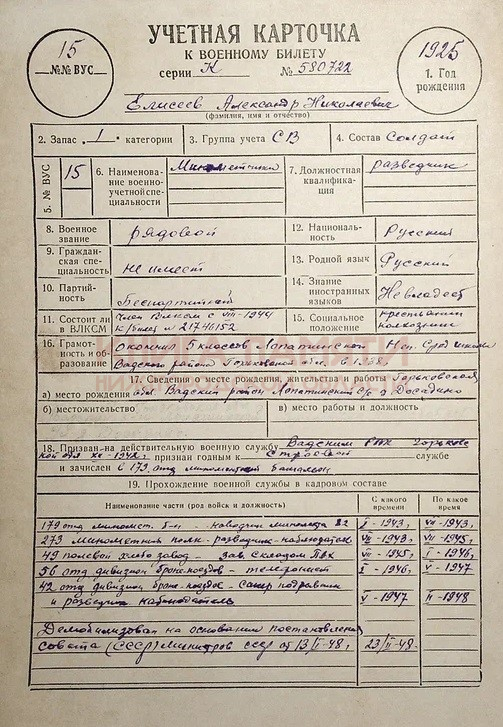 УЧЕТНАЯ КАРТОЧКА
К ВОЕННОМУ БИЛЕТУ
серии К № 580722
15
№№ ВУС
1925
1. Год рождения
Елисеев Александр Николаевич
(фамилия, имя и отчество)
2. Запас 1 категории 3. Группа учета СВ 4. Состав Солдат
5. № ВУС 15 6. Наименование военно-учетной специальности Минометчики 7. Должностная квалификация разведчик
8. Военное звание рядовой 12. Национальность Русский
9. Гражданская специальность не имеет 13. Родной язык Русский
10. Партийность Беспартийный 14. Знание иностранных языков Не владеет
11. Состоит ли в ВЛКСМ Член Влксм с VIII-1944 к/билет № 21746152 15. Социальное положение крестьянин колхозник
16. Грамотность и образование Окончил 5 классов Лопатинской Сред школы
Вадского района Горьковской обл. в 1938
17. Сведения о месте рождения, жительства и работы Горьковская
а) место рождения обл Вадский район Лопатинский с/с д Досадино
б) местожительство в) место работы и должность
18. Призван на действительную военную службу Вадским РВК Горьковс
кой обл XI-1942, признан годным к строевой службе
и зачислен в 179 отд минометный батальон
19. Прохождение военной службы в кадровом составе
Наименование части (род войск и должность) С какого времени По какое время
179 отд миномет. б-н - наводчик миномета 82 I-1943, VII-1943,
273 минометный полк - разведчик-наблюдатель VII-1943, VII-1945,
49 полевой хлебозавод - зав. складом VII-1945, I-1946,
56 отд дивизион бронепоездов - телефонист I-1946, V-1947
42 отд дивизион броне-поездов - сапер подрывник
и разведчик наблюдатель V-1947 II-1948
Демобилизован на основании постановления
совета (СССР) Министров ссср от 13/II-48, 23/II-48.